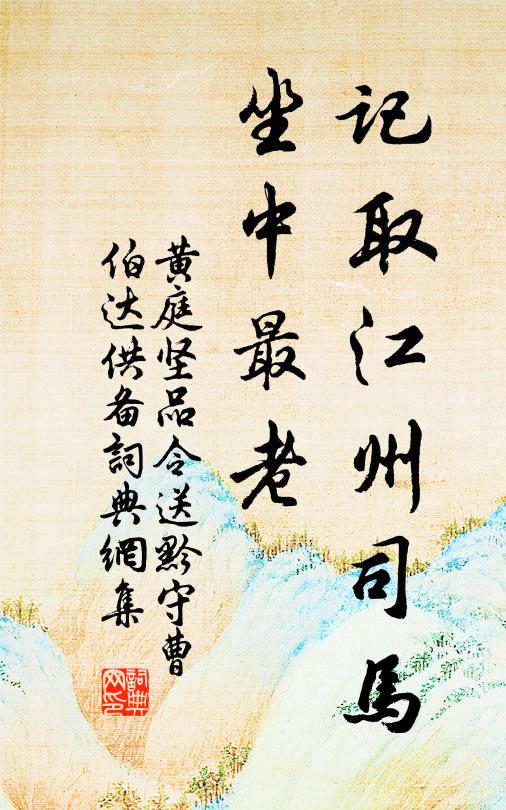 记取江州司马
坐中最老
黄庭坚品令送黔守曹
伯达供备词典网集
詞典
网印